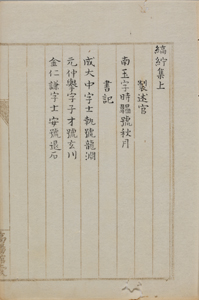 縞紵集上
製述官
南玉字時韞號秋月
書記
成大中字士執號龍淵
元仲擧字子才號玄川
金仁謙字士安號退石